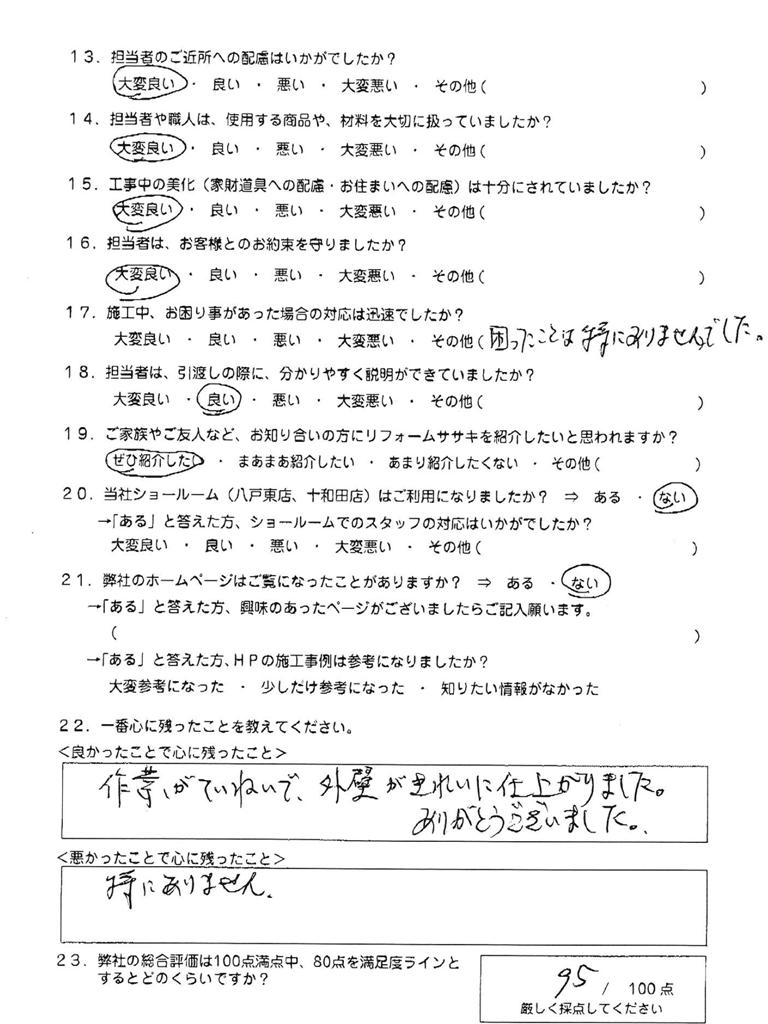 13．担当者のご近所への配慮はいかがでしたか？
大変良い ・ 良い ・ 悪い ・ 大変悪い ・ その他（　　　）
14．担当者や職人は、使用する商品や、材料を大切に扱っていましたか？
大変良い ・ 良い ・ 悪い ・ 大変悪い ・ その他（　　　）
15．工事中の美化（家財道具への配慮・お住まいへの配慮）は十分にされていましたか？
大変良い ・ 良い ・ 悪い ・ 大変悪い ・ その他（　　　）
16．担当者は、お客様とのお約束を守りましたか？
大変良い ・ 良い ・ 悪い ・ 大変悪い ・ その他（　　　）
17．施工中、お困り事があった場合の対応は迅速でしたか？
大変良い ・ 良い ・ 悪い ・ 大変悪い ・ その他（困ったことは特にありませんでした。
18．担当者は、引渡しの際に、分かりやすく説明ができていましたか？
大変良い ・ 良い ・ 悪い ・ 大変悪い ・ その他（　　　）
19．ご家族やご友人など、お知り合いの方にリフォームササキを紹介したいと思われますか？
ぜひ紹介したい ・ まあまあ紹介したい ・ あまり紹介したくない ・ その他（　　　）
20．当社ショールーム（八戸東店、十和田店）はご利用になりましたか？ ⇒ ある ・ ない
→「ある」と答えた方、ショールームでのスタッフの対応はいかがでしたか？
大変良い ・ 良い ・ 悪い ・ 大変悪い ・ その他（　　　）
21．弊社のホームページはご覧になったことがありますか？ ⇒ ある ・ ない
→「ある」と答えた方、興味のあったページがございましたらご記入願います。
（　　　）
→「ある」と答えた方、ＨＰの施工事例は参考になりましたか？
大変参考になった ・ 少しだけ参考になった ・ 知りたい情報がなかった
22．一番心に残ったことを教えてください。
＜良かったことで心に残ったこと＞
作業がていねいで、外壁がきれいに仕上がりました。
ありがとうございました。
＜悪かったことで心に残ったこと＞
特にありません。
23．弊社の総合評価は100点満点中、80点を満足度ラインと
するとどのくらいですか？
95 / 100点
厳しく採点してください